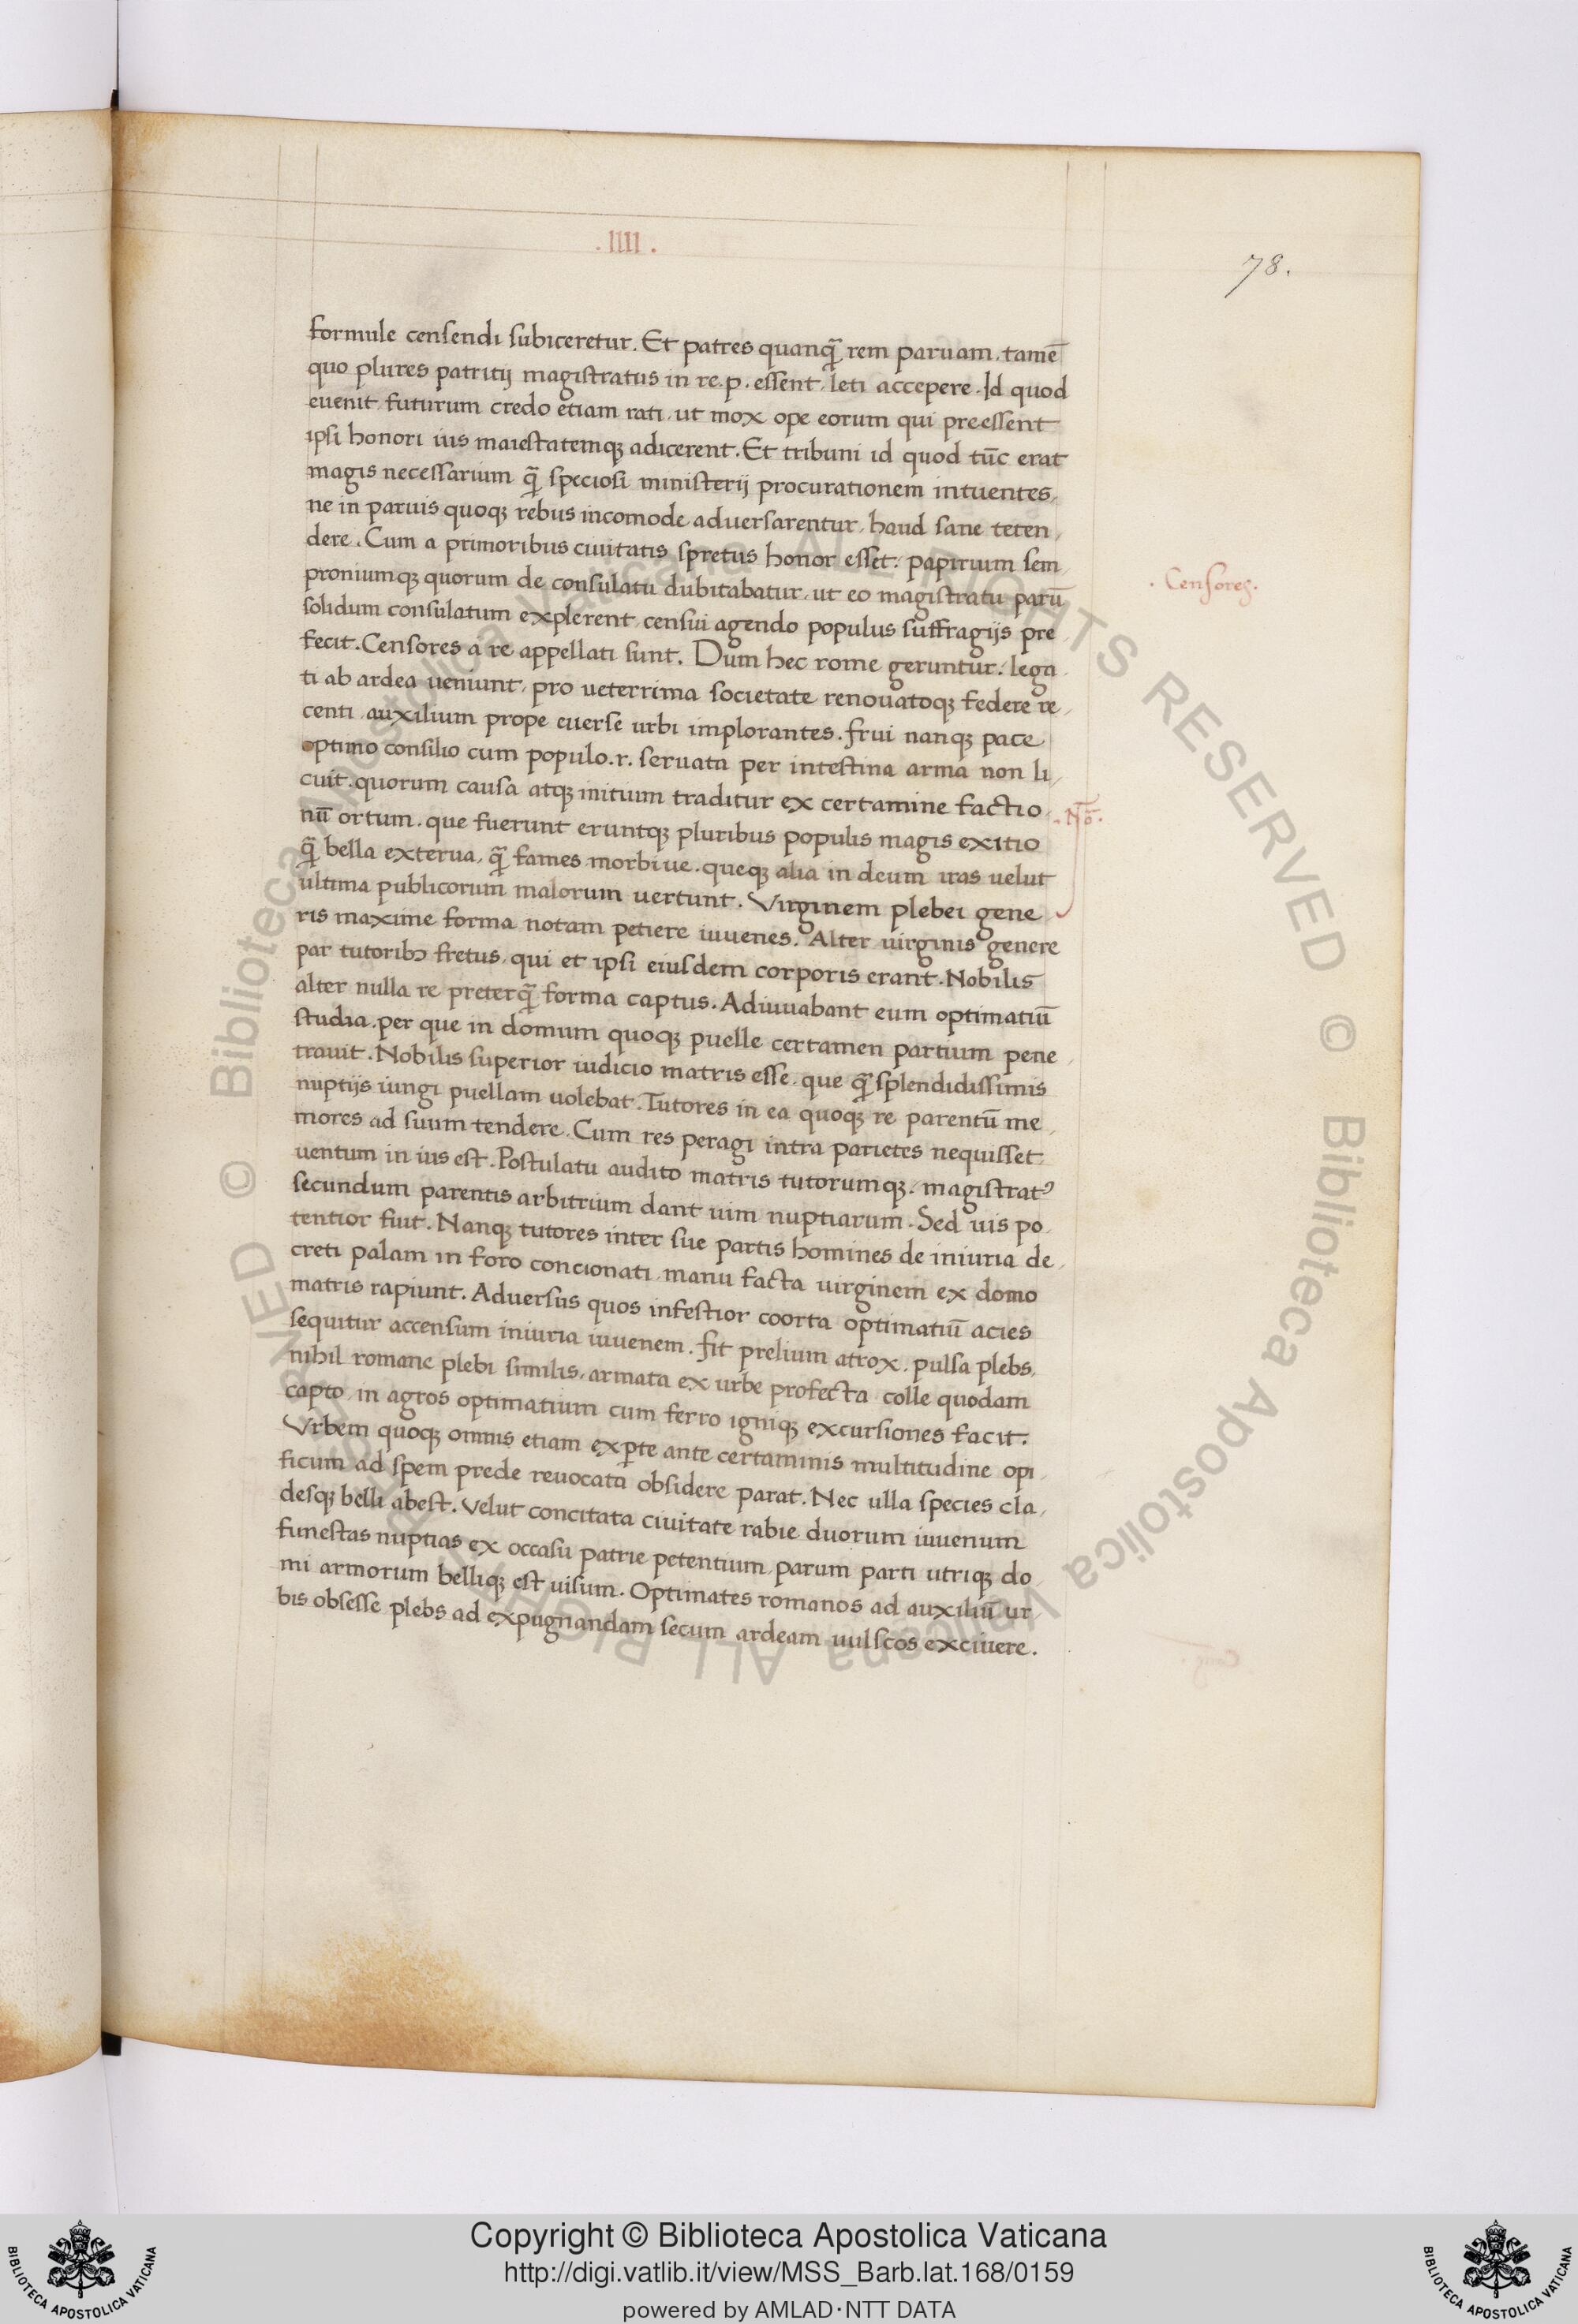 .IIII.
78.
formule censendi subiceretur. Et patres quanq̃ rem paruam, tamē
quo plures patritij magistratus in re.p. essent, leti accepere. Id quod
euenit, futurum credo etiam rati, ut mox ope eorum qui preessent
ipsi honori ius maiestatemqꝫ adicerent. Et tribuni id quod tūc erat
magis necessarium q̃ speciosi ministerij procurationem intuentes,
ne in paruis quoqꝫ rebus incomode aduersarentur, haud sane teten
dere. Cum a primoribus ciuitatis spretus honor esset: papirium sem
proniumqꝫ quorum de consulatu dubitabatur, ut eo magistratu parū
.Censores.
solidum consulatum explerent, censui agendo populus suffragijs pre
fecit. Censores a re appellati sunt. Dum hec rome geruntur: lega
ti ab ardea ueniunt, pro ueterrima societate renouatoqꝫ federe re
centi, auxilium prope euerse urbi implorantes. frui nanqꝫ pace
optimo consilio cum populo.r. seruata per intestina arma non li
cuit. quorum causa atqꝫ initium traditur ex certamine factio
.Nō.
nū ortum. que fuerunt eruntqꝫ pluribus populis magis exitio
q̃ bella externa, q̃ fames morbiue. queqꝫ alia in deum iras uelut
ultima publicorum malorum uertunt. Virginem plebei gene
ris maxime forma notam petiere iuuenes. Alter uirginis genere
par tutoribꝫ fretus, qui et ipsi eiusdem corporis erant. Nobilis
alter nulla re preterq̃ forma captus. Adiuuabant eum optimatiū
studia. per que in domum quoqꝫ puelle certamen partium pene
trauit. Nobilis superior iudicio matris esse, que q̃ splendidissimis
nuptijs iungi puellam uolebat. Tutores in ea quoqꝫ re parentū me
mores ad suum tendere. Cum res peragi intra parietes nequisset
uentum in ius est. Postulatu audito matris tutorumqꝫ: magistratꝰ
secundum parentis arbitrium dant uim nuptiarum. Sed uis po
tentior fiut. Nanqꝫ tutores inter sue partis homines de iniuria de
creti palam in foro concionati, manu facta uirginem ex domo
matris rapiunt. Aduersus quos infestior coorta optimatiū acies
sequitur accensum iniuria iuuenem. fit prelium atrox. pulsa plebs,
nihil romane plebi similis, armata ex urbe profecta colle quodam
capto, in agros optimatium cum ferro igniqꝫ excursiones facit.
Vrbem quoqꝫ omnis etiam exꝑte ante certaminis multitudine opi
ficum ad spem prede reuocata obsidere parat. Nec ulla species cla
desqꝫ belli abest. Velut concitata ciuitate rabie duorum iuuenum
funestas nuptias ex occasu patrie petentium, parum parti utriqꝫ do
mi armorum belliqꝫ est uisum. Optimates romanos ad auxiliū ur
bis obsesse plebs ad expugnandam secum ardeam uulscos exciuere.
© Biblioteca Apostolica Vaticana ALL RIGHTS RESERVED
© Biblioteca Apostolica Vaticana ALL RIGHTS RESERVED
Copyright © Biblioteca Apostolica Vaticana
http://digi.vatlib.it/view/MSS_Barb.lat.168/0159
powered by AMLAD·NTT DATA
BIBLIOTECA APOSTOLICA VATICANA
BIBLIOTECA APOSTOLICA VATICANA